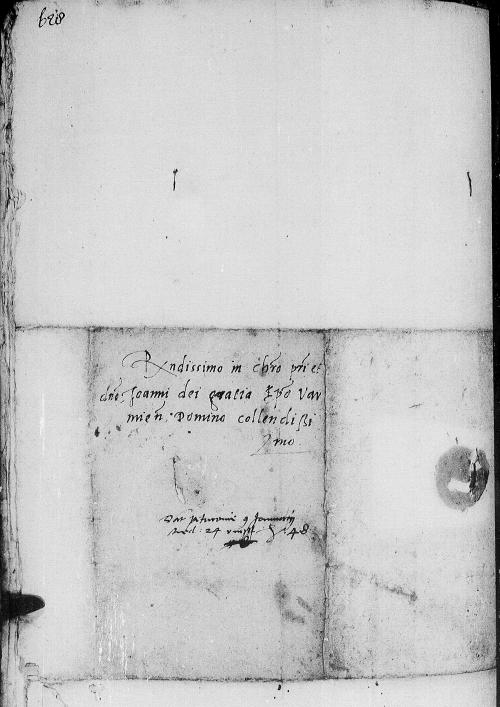 628
Rndissimo in Chro pri et
dno: Joanni dei gratia Epo Var
mien. Domino collendißi
mo
9 Januarij
24
48